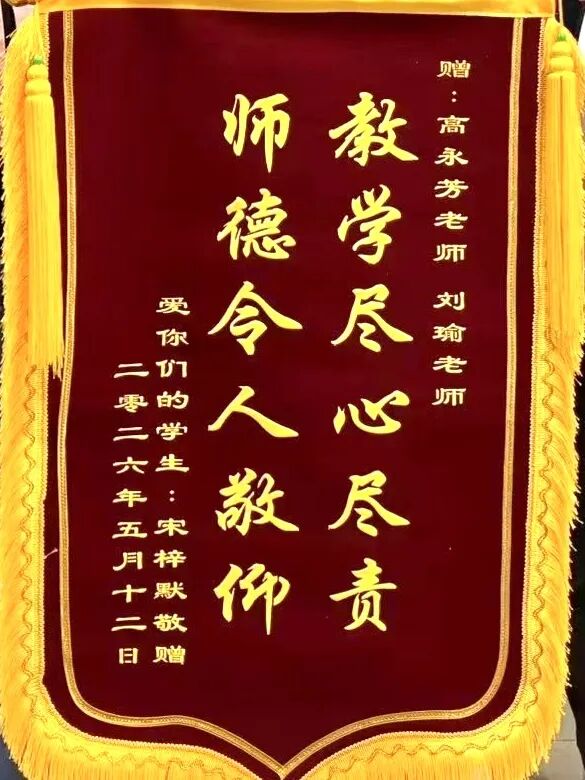 赠：高永芳老师 刘瑜老师
教学尽心尽责
师德令人敬仰
爱你们的学生：宋梓默敬赠
二零二六年五月十二日